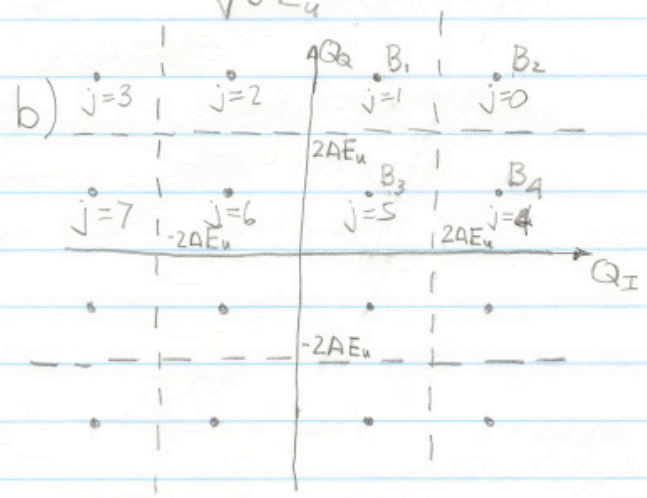 Q_Q B_1 B_2
j=3 j=2 j=1 j=0
b)
2AE_u
B_3 B_4
j=7 j=6 j=5 j=4
-2AE_u 2AE_u
Q_I
-2AE_u